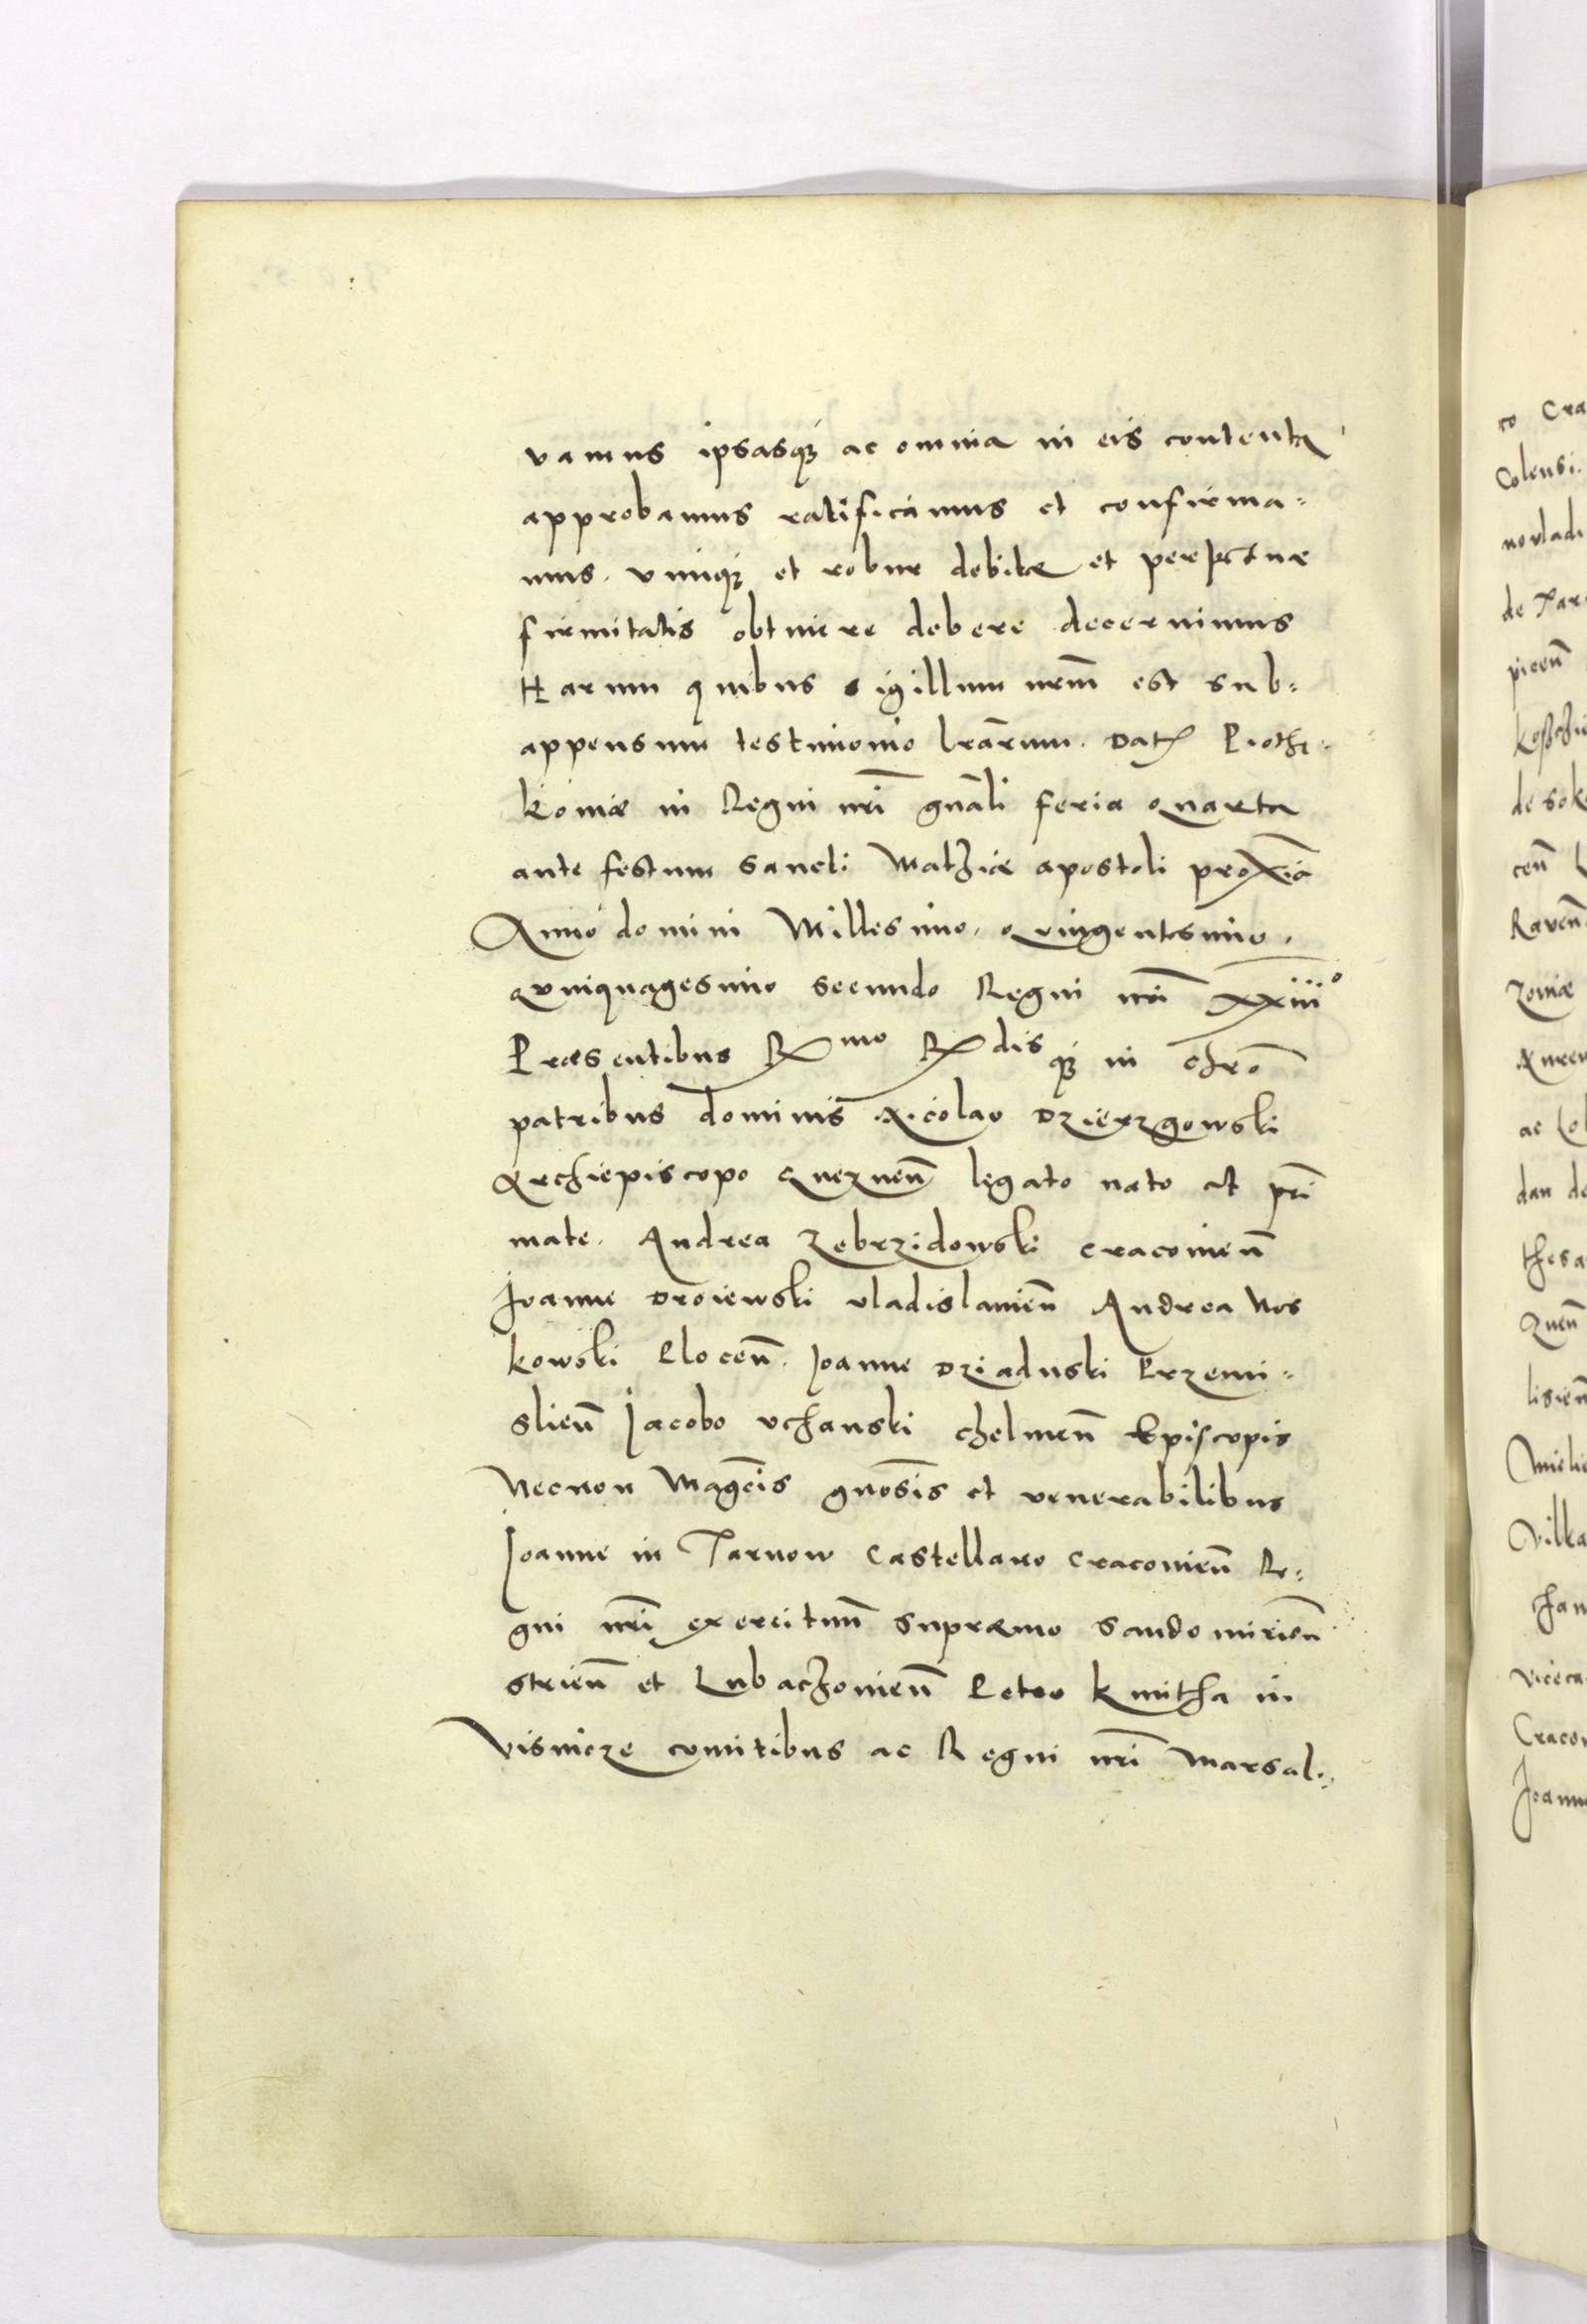 vamus ipsasq₃ ac omnia in eis contenta
approbamus ratificamus et confirma=
mus. vimq₃ et robur debitæ et perpetuæ
firmitatis obtinere debere decernimus
Harum quibus sigillum nrm̄ est sub=
appensum testimonio lrārum. Dat Pioth=
koviæ in Regni nrī gnāli feria quarta
ante festum sancti Mathiæ apostoli proxīa
Anno domini Millesimo. quingentesimo.
quinquagesimo secundo Regni nrī xxiii°
Præsentibus Rmo Rdis q₃ in chrō
patribus dominis Nicolao Dzierzgowski
Archiepiscopo Gneznen̄ legato nato et pri
mate. Andrea Zebrzidowski Cracovien̄
Joanne Droiewski Vladislavien̄ Andrea Nos
kowski Plocen̄. Joanne Dziaduski Przemi=
slien̄ Jacobo Vchanski Chelmen̄ Episcopis
Necnon Magcīs gnōsis et venerabilibus
Joanne in Tarnow Castellano Cracovien̄ Re=
gni nrī exercituum̄ supræmo Sandomirien̄
Strien̄ et Lubaczovien̄ Petro Kmitha in
Visnicze comitibus ac Regni nrī Marsal=
to Cra
Colensi.
novladi
de Tar
picen̄
de sok
cen̄
Raven̄
zoviæ
ac Col
dan de
thesa
lisien̄
Vilka
vice ca
Craco
Joann